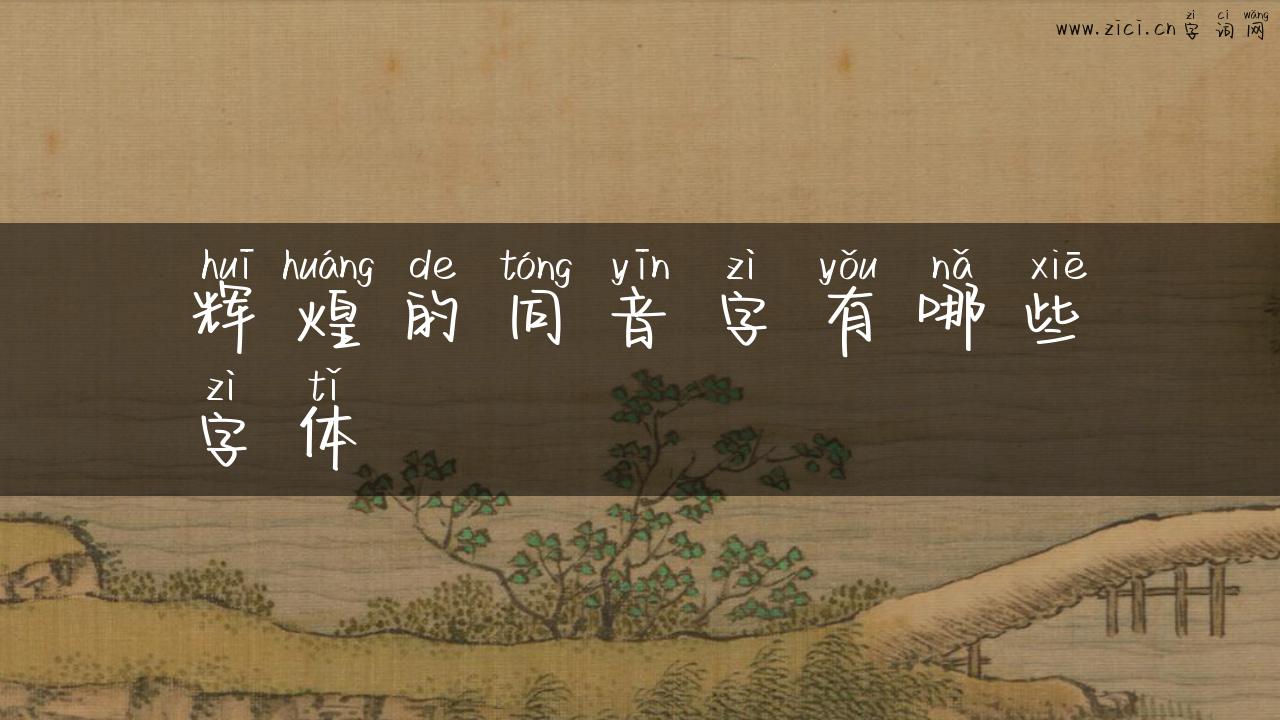 zì cí wǎng
www.zici.cn 字词网
huī huáng de tóng yīn zì yǒu nǎ xiē
辉煌的同音字有哪些
zì tǐ
字体